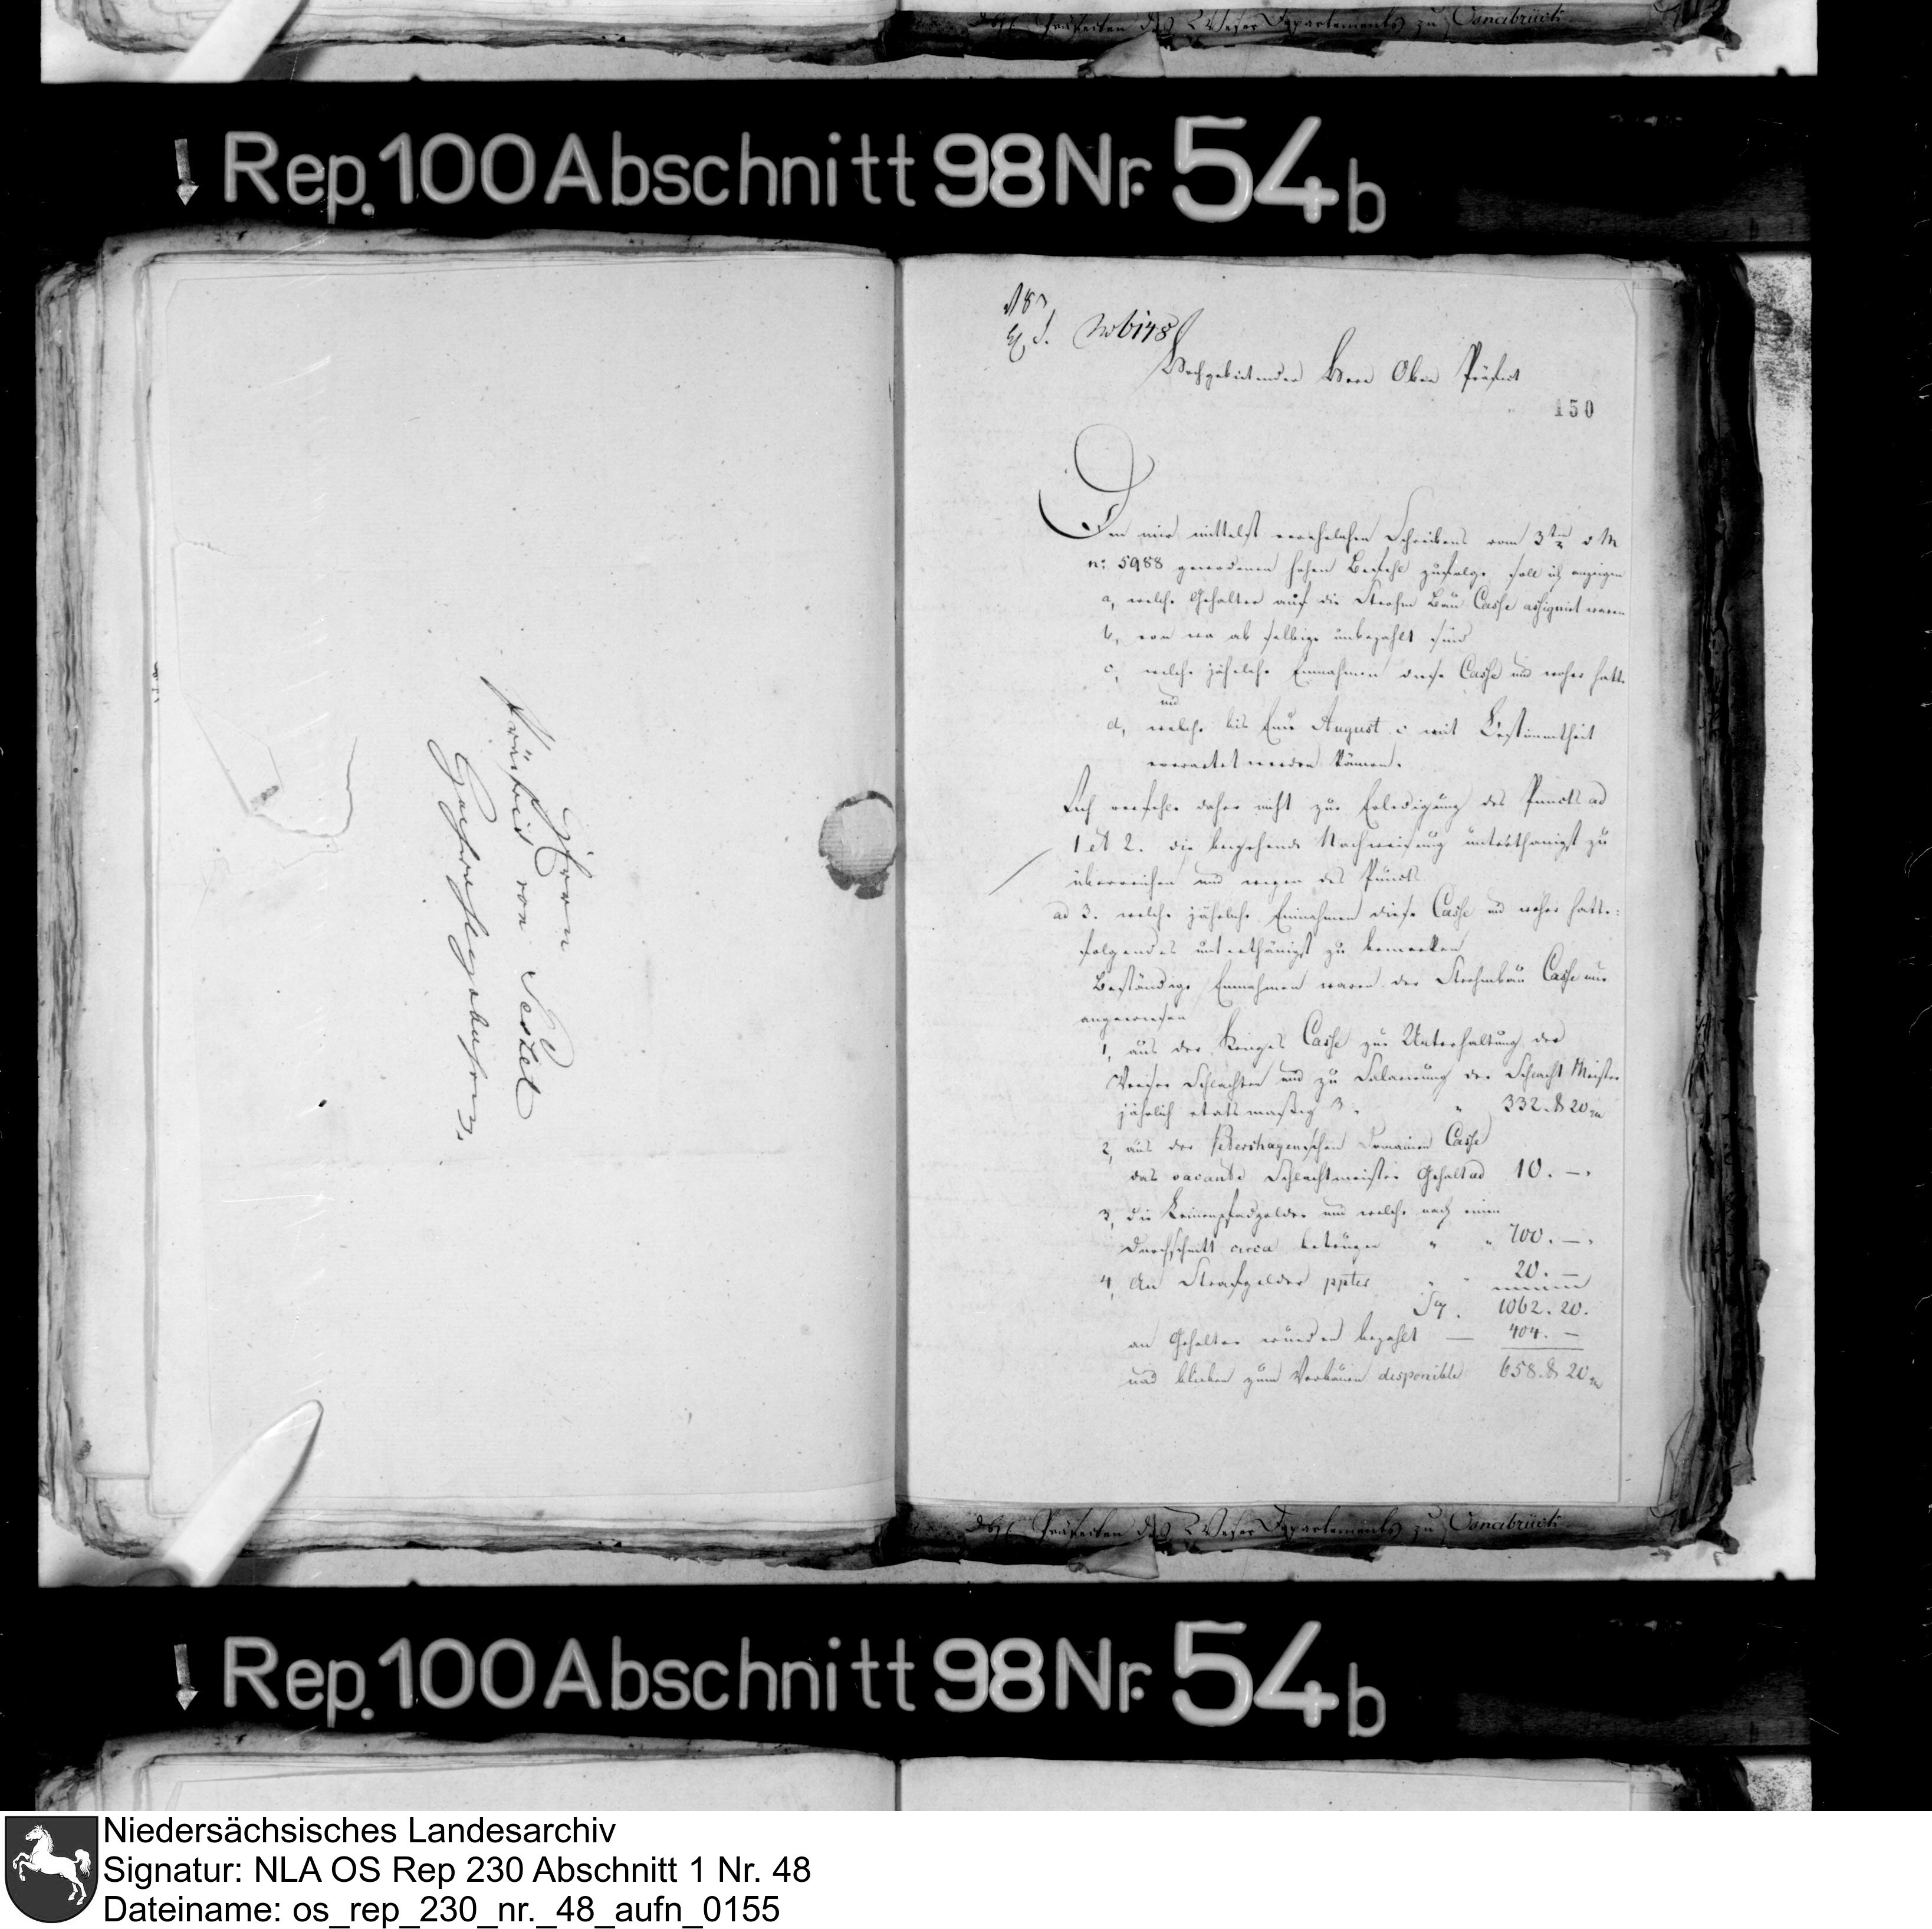 des Präfecten des Weser Departements zu Osnabrück
Rep. 100 Abschnitt 98 Nr. 54b
Herrn
Präfect von Pestel
Hochwohlgebohren,
No 6178
Hochgebietender Herr Ober Präfect
150
Dem mir mittelst verehrlichen Schreibens vom 3ten d M
n: 5988 gewordenen hohen Befehl zufolge soll ich anzeigen
a, welche Gehalter auf die Strohm Bau Casse assignirt waren
b, von wo ab selbige unbezahlt sind
c, welche jährliche Einnahmen diese Casse und woher hatte
und
d, welche bis Ende August c mit Bestimmtheit
erwartet werden können.
Ich verfehle daher nicht zur Erledigung des Puncts ad
1 et 2. die beygehende Nachweisung unterthänigst zu
überreichen und wegen des Puncts
ad 3. welche jährliche Einnahmen diese Casse und woher hatte:
folgendes unterthänigst zu bemerken
Beständige Einnahmen waren der Strohmbau Casse nur
angewiesen
1, aus der Krieges Casse zur Unterhaltung der
Weeser Schlachten und zu Salarirung der Schlacht Meister
jährlich etatsmaßig 332. 20
2, aus der Petershagenschen Domainen Casse
das vacante Schlachtmeister Gehalt ad 10. —
3, die Leinenpfadgelder und welche nach einen
Durchschnitt circa betrugen 700. —
4, An Strafgelder ppter 20. —
1062. 20.
an Gehalter wurden bezahlt — 404. —
und blieben zum Verbauen disponible 658. 20
des Präfecten des Weser Departements zu Osnabrück
Rep. 100 Abschnitt 98 Nr. 54b
Niedersächsisches Landesarchiv
Signatur: NLA OS Rep 230 Abschnitt 1 Nr. 48
Dateiname: os_rep_230_nr._48_aufn_0155